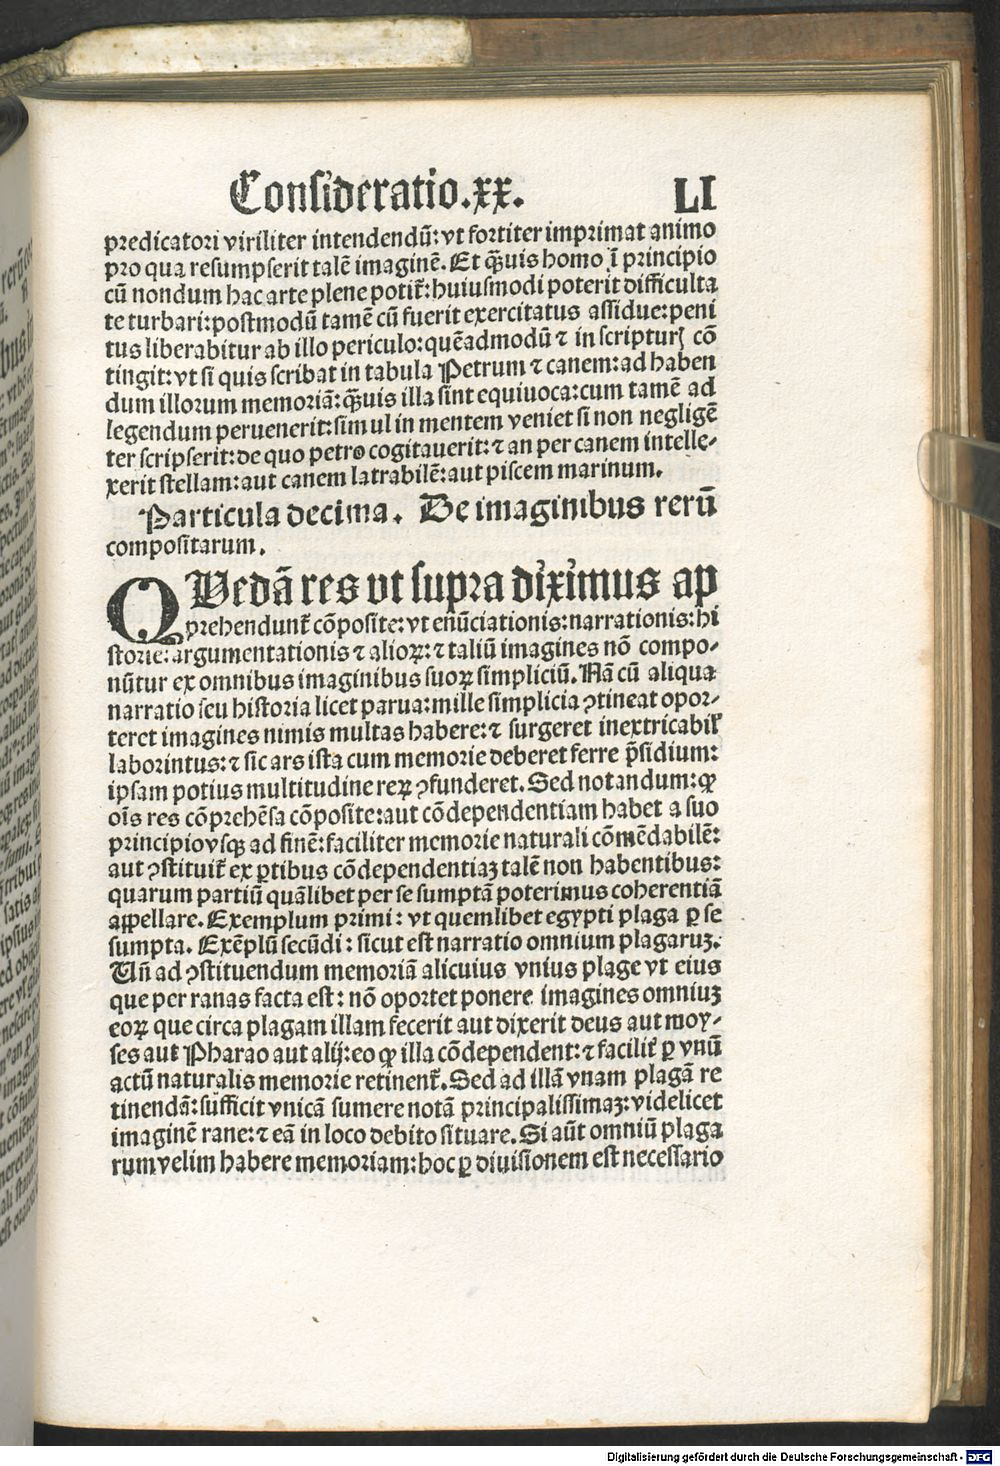 Consideratio.xx. LI
predicatori viriliter intendendū: vt fortiter imprimat animo
pro qua resumpserit talē imaginē. Et q̄uis homo ī principio
cū nondum hac arte plene potit᷑: huiusmodi poterit difficulta
te turbari: postmodū tamē cū fuerit exercitatus assidue: peni
tus liberabitur ab illo periculo: quēadmodū ⁊ in scripturꝭ cō
tingit: vt si quis scribat in tabula Petrum ⁊ canem: ad haben
dum illorum memoriā: q̄uis illa sint equiuoca: cum tamē ad
legendum peruenerit: simul in mentem veniet si non negligē
ter scripserit: de quo petro cogitauerit: ⁊ an per canem intelle-
xerit stellam: aut canem latrabilē: aut piscem marinum.
Particula decima. De imaginibus rerū
compositarum.
QVedā res vt supra diximus ap
prehendunt᷑ cōposite: vt enūciationis: narrationis: hi
storie: argumentationis ⁊ alioꝝ: ⁊ taliū imagines nō compo-
nūtur ex omnibus imaginibus suoꝝ simpliciū. Nā cū aliqua
narratio seu historia licet parua: mille simplicia ꝯtineat opor-
teret imagines nimis multas habere: ⁊ surgeret inextricabil᷑
laborintus: ⁊ sic ars ista cum memorie deberet ferre p̄sidium:
ipsam potius multitudine reꝝ ꝯfunderet. Sed notandum: ꝙ
oīs res cōprehēsa cōposite: aut cōdependentiam habet a suo
principio vsqꝫ ad finē: faciliter memorie naturali cōmēdabilē:
aut ꝯstituit᷑ ex ꝑtibus cōdependentiaꝫ talē non habentibus:
quarum partiū quālibet per se sumptā poterimus coherentiā
appellare. Exemplum primi: vt quemlibet egypti plaga ꝑ se
sumpta. Exēplū secūdi: sicut est narratio omnium plagaruꝫ.
Un̄ ad ꝯstituendum memoriā alicuius vnius plage vt eius
que per ranas facta est: nō oportet ponere imagines omniuꝫ
eoꝝ que circa plagam illam fecerit aut dixerit deus aut moy-
ses aut Pharao aut alij: eo ꝙ illa cōdependent: ⁊ facilit᷑ ꝑ vnū
actū naturalis memorie retinent᷑. Sed ad illā vnam plagā re
tinendā: sufficit vnicā sumere notā principalissimaꝫ: videlicet
imaginē rane: ⁊ eā in loco debito situare. Si aūt omniū plaga
rum velim habere memoriam: hoc ꝑ diuisionem est necessario
Digitalisierung gefördert durch die Deutsche Forschungsgemeinschaft - DFG